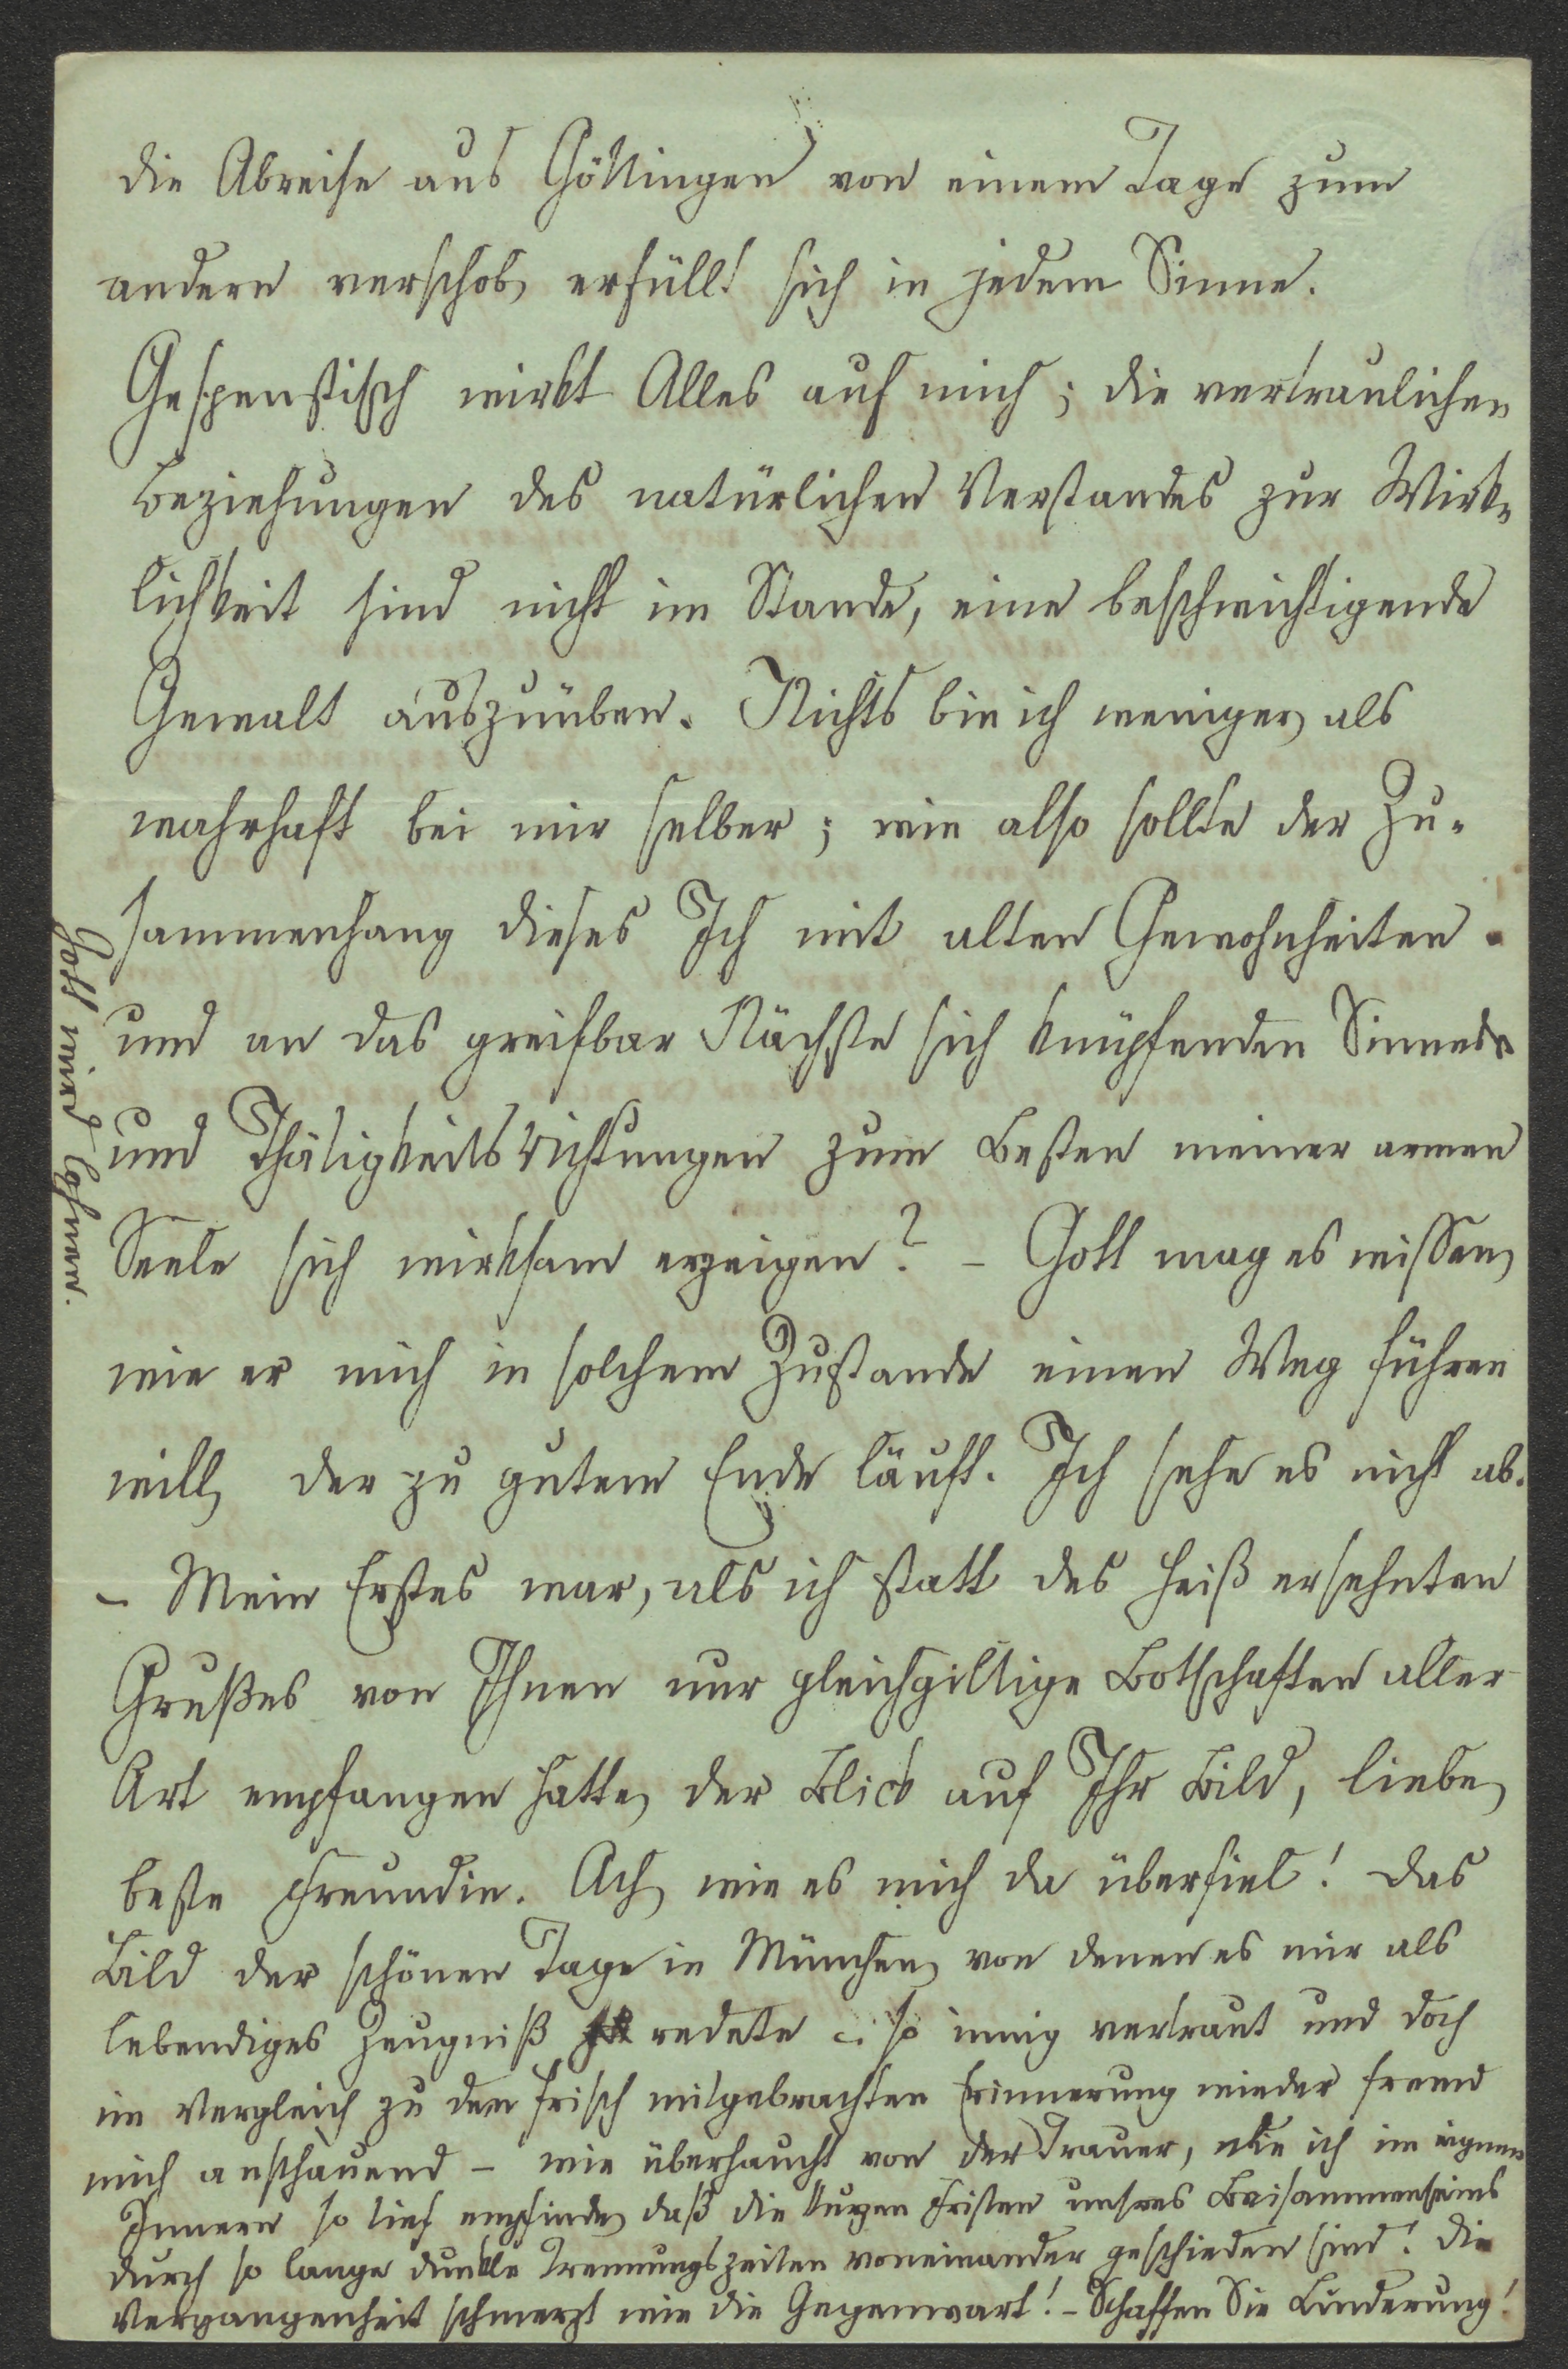 die Abreise aus Göttingen von einem Tage zum
andern verschob, erfüllt sich in jedem Sinne.
Gespenstisch wirkt Alles auf mich; die vertraulichen
Beziehungen des natürlichen Verstandes zur Wirk-
lichkeit sind nicht im Stande, eine beschwichtigende
Gewalt auszuüben. Nichts bin ich weniger, als
wahrhaft bei mir selber; wie also sollte der Zu-
sammenhang dieses Ich mit alten Gewohnheiten
und an das greifbar Nächste sich knüpfenden Sinnes
und Thätigkeitsrichtungen zum Besten meiner armen
Seele sich wirksam erzeigen? – Gott mag es wissen,
wie er mich in solchem Zustande einen Weg führen
will, der zu gutem Ende läuft. Ich sehe es nicht ab.
– Mein Erstes war, als ich statt des heiß ersehnten
Grußes von Ihnen nur gleichgiltige Botschaften aller
Art empfangen hatte, der Blick auf Ihr Bild, liebe,
beste Freundin. Ach, wie es mich da überfiel! Das
Bild der schönen Tage in München, von denen es mir als
lebendiges Zeugniß redete – so innig vertraut und doch
im Vergleich zu der frisch mitgebrachten Erinnerung wieder fremd
mich anschauend – wie überhaucht von der Trauer, die ich im eignen
Innern so tief empfinde, daß die kurzen Fristen unsres Beisammenseins
durch so lange dunkle Trennungszeiten voneinander geschieden sind! Die
Vergangenheit schmerzt wie die Gegenwart! – Schaffen Sie Linderung!
Gott wird lohnen.